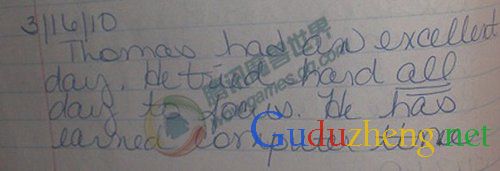 3/16/10
Thomas had an excellent
day. He tried hard all
day to focus. He has
earned computer time
Guduzheng.net